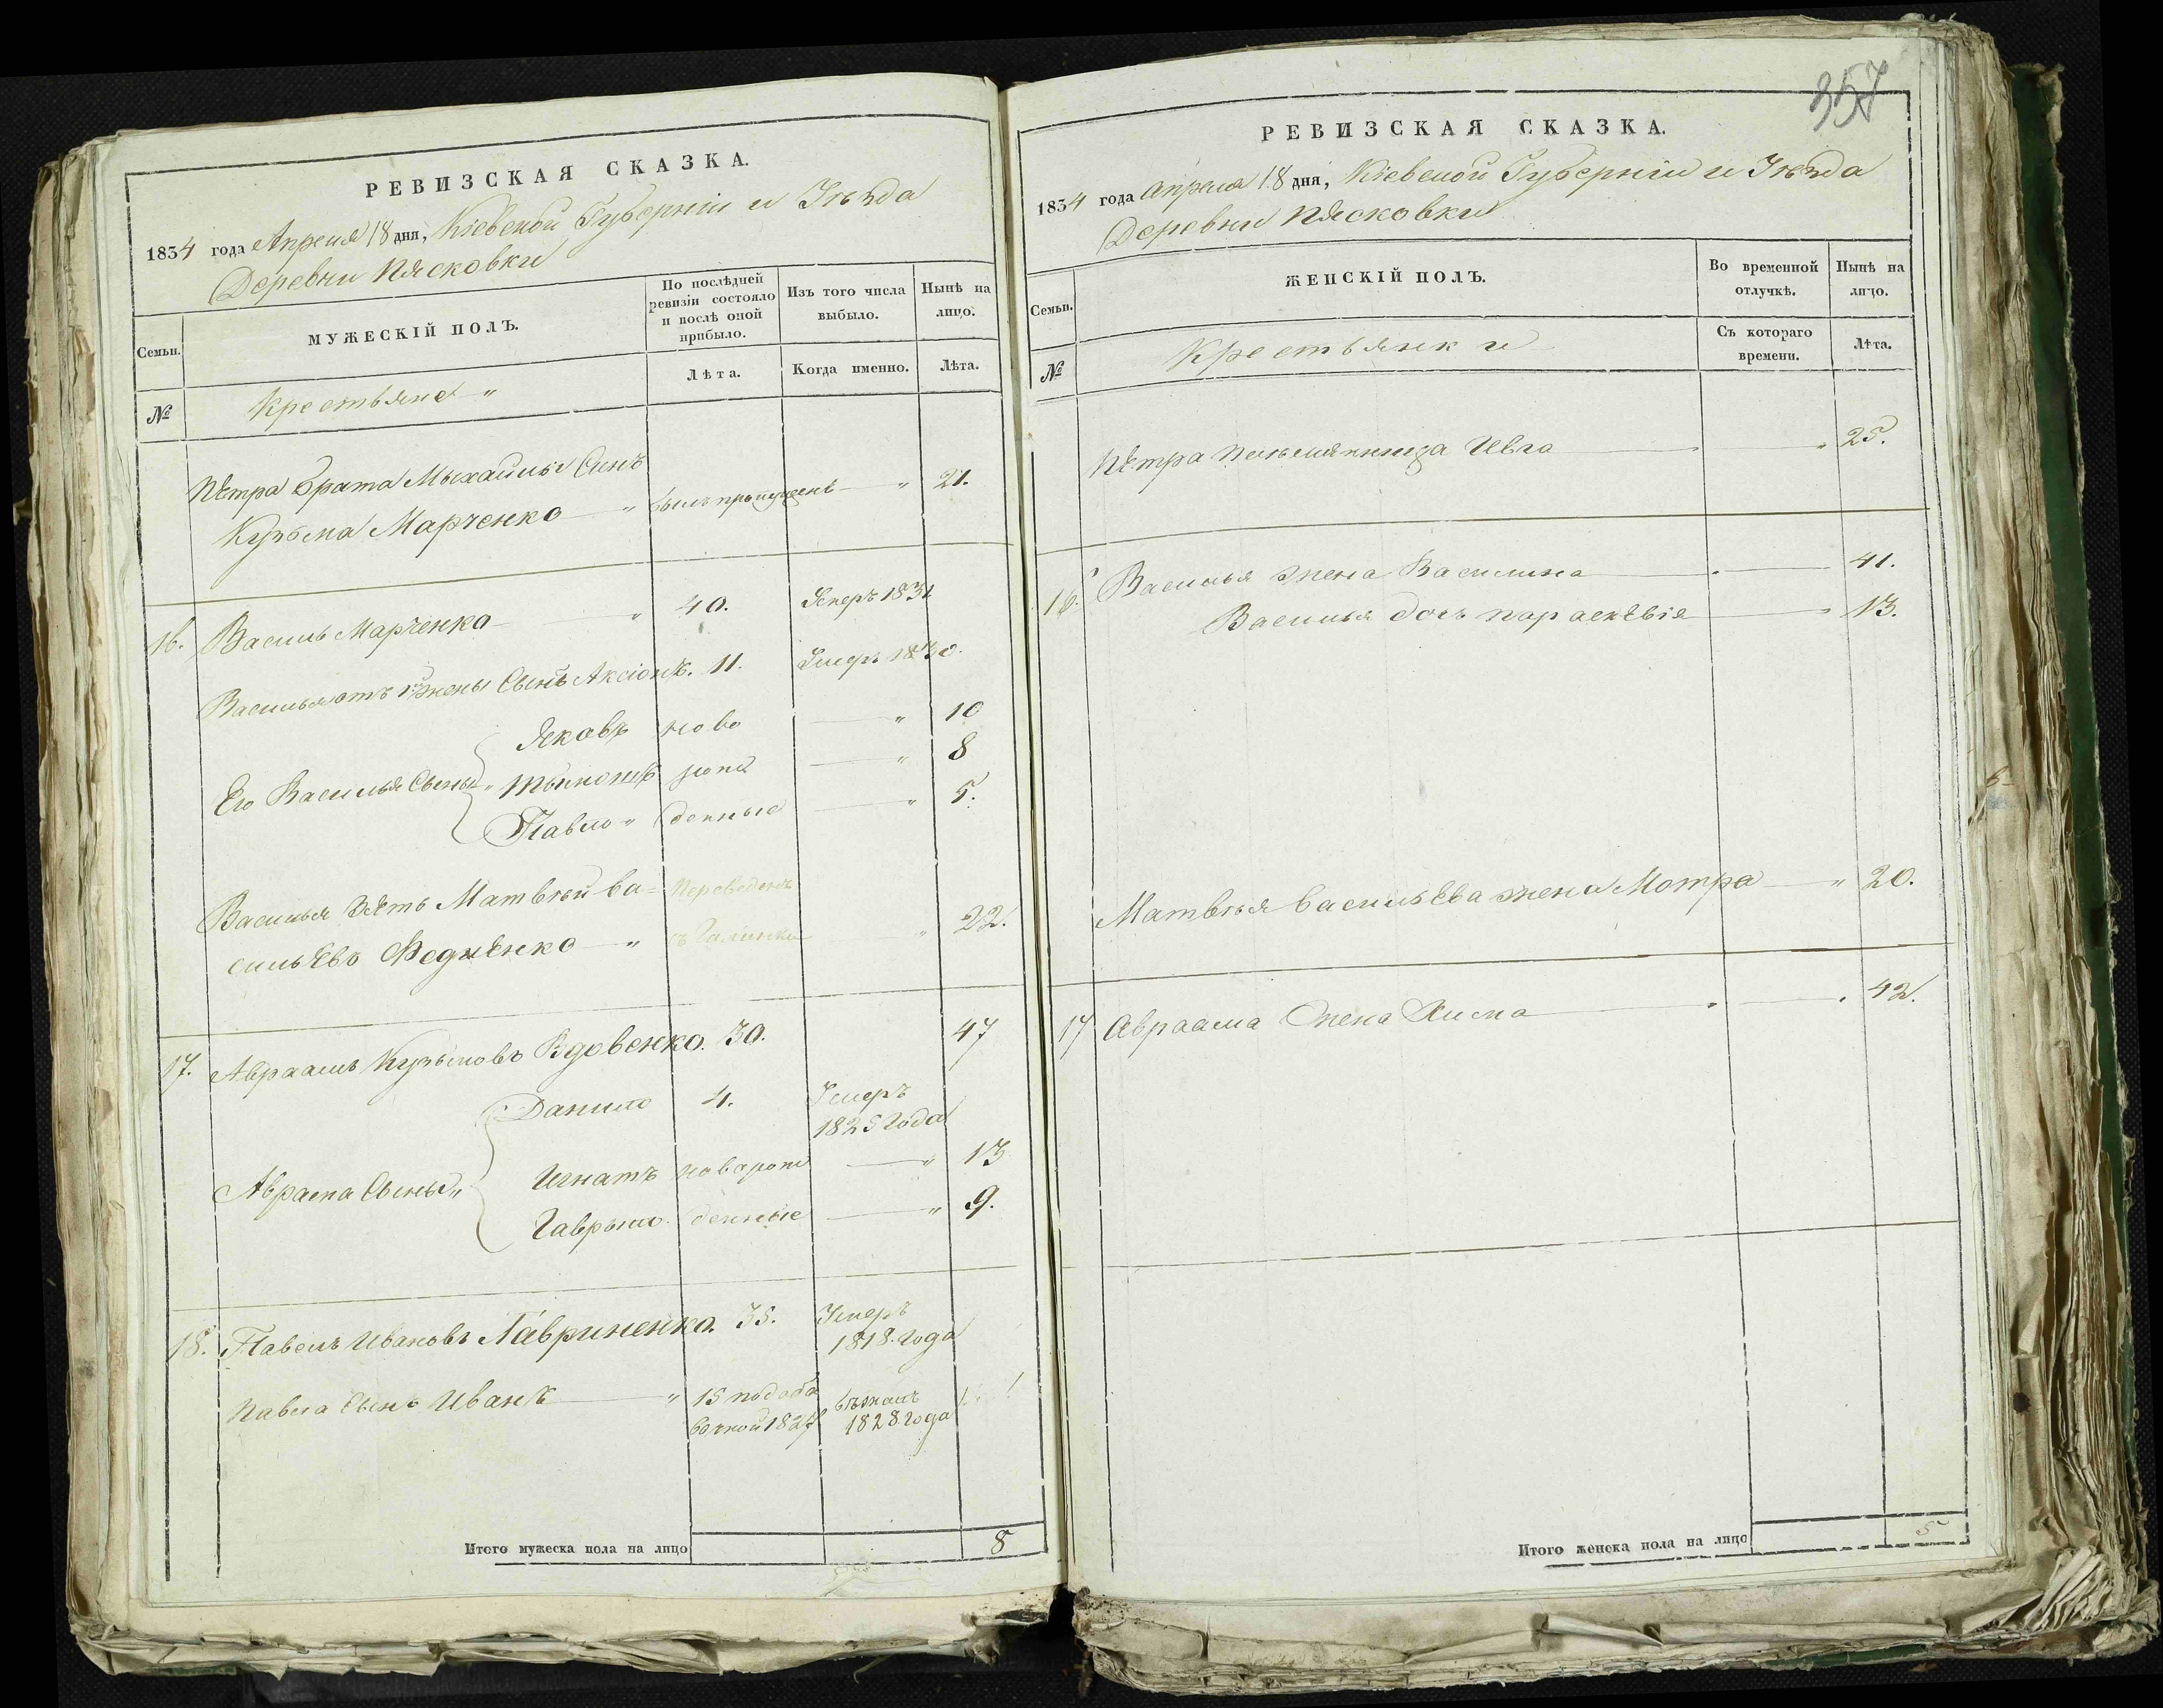 РЕВИЗСКАЯ СКАЗКА.
1834 года Апреля 18 дня, Кіевской Губерніи и Уѣзда
Деревни Пясковки
Семьи.
МУЖЕСКІЙ ПОЛЪ.
По послѣдней ревизіи состояло и послѣ оной прибыло.
Изъ того числа выбыло.
Нынѣ на лицо.
№
Крестьяне "
Лѣта.
Когда именно.
Лѣта.
Пѣтра брата Мыхайлы Сынъ
Кузьма Марченко " былъ пропущенъ " 21.
16. Василь Марченко " 40. Умеръ 1831
Василья отъ 1й жены Сынъ Аксіонъ. 11. Умеръ 1830.
Яковъ ново " 10
Его Василья Сыны " Тымошъ рож " 8
Павло " денные " 5.
Василья зять Матвѣй Ва= Переведенъ
сильево Федченко " съ " 22.
17. Авраамъ Кузьмовъ Вдовенко. 30. 47
Данило 4. Умеръ
1825 года
Аврама Сыны " Игнатъ новарож " 13
Гаврыло. денные " 9.
18. Павелъ Ивановъ Гавриненко. 35. Умеръ
1818. года
Павла Сынъ Иванъ " 15 по доба бѣжалъ
вочной 1827 1828 года
Итого мужеска пола на лицо 8
357
РЕВИЗСКАЯ СКАЗКА.
1834 года Апреля 18 дня, Кіевской Губерніи и Уѣзда
Деревни Пясковки
Семьи.
ЖЕНСКІЙ ПОЛЪ.
Во временной отлучкѣ.
Нынѣ на лицо.
№
Крестьянки
Съ котораго времени.
Лѣта.
Пѣтра племянница Ивга " 25.
16. Василья жена Василина 41.
Василья дочь Параскѣвія " 13.
Матвѣя Васильева жена Мотра " 20.
17 Авраама жена 42.
Итого женска пола на лицо 5